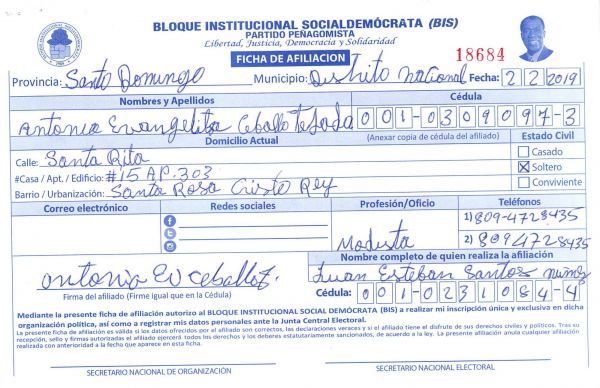 BLOQUE INSTITUCIONAL SOCIALDEMÓCRATA (BIS)
PARTIDO PEÑAGOMISTA
Libertad, Justicia, Democracia y Solidaridad
FICHA DE AFILIACION
18684
Provincia: Santo Domingo Municipio: Distrito nacional Fecha: 2 2 2019
Nombres y Apellidos Cédula
Antonia Evangelita Ceballo Tejada 001-0309097-3
Domicilio Actual (Anexar copia de cédula del afiliado) Estado Civil
Calle: Santa Rita
Casado
#Casa / Apt. / Edificio: #15 AP. 303
Soltero
Barrio / Urbanización: Santa Rosa Cristo Rey
Conviviente
Correo electrónico Redes sociales Profesión/Oficio Teléfonos
1) 809-4728435
Modista 2) 8094728435
Nombre completo de quien realiza la afiliación
antonia Ev ceballo Juan Esteban Santos Nuñez
Firma del afiliado (Firme igual que en la Cédula) Cédula: 001-0231084-4
Mediante la presente ficha de afiliación autorizo al BLOQUE INSTITUCIONAL SOCIAL DEMÓCRATA (BIS) a realizar mi inscripción única y exclusiva en dicha
organización política, así como a registrar mis datos personales ante la Junta Central Electoral.
La presente ficha de afiliación es válida si los datos ofrecidos por el afiliado son correctos, las declaraciones veraces y si el afiliado tiene el disfrute de sus derechos civiles y políticos. Tras su
recepción, sello y firmas autorizadas el afiliado ejercerá todos los derechos y los deberes estatutariamente sancionados, de acuerdo a la ley. La presente afiliación anula cualquier afiliación
realizada con anterioridad a la fecha que aparece en esta ficha.
SECRETARIO NACIONAL DE ORGANIZACIÓN SECRETARIO NACIONAL ELECTORAL